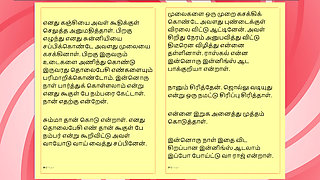 எனது கஞ்சியை அவள் கூதிக்குள்
செலுத்த அனுமதித்தாள். பிறகு
எழுந்து எனது கன்னியை
சப்பிக்கொண்டே அவளது முலையை
கசக்கினாள். பிறகு இருவரும்
உடைகளை அணிந்து கொண்டு
இருவரது தொலைபேசி எண்களையும்
பரிமாறிக்கொண்டோம். இன்னொரு
நாள் பார்த்துக் கொள்ளலாம் என்று
எனது கூகுள் பே நம்பரை கேட்டாள்.
நான் எதற்கு என்றேன்.
சும்மா தான் கொடு என்றாள். எனது
தொலைபேசி எண் தான் கூகுள் பே
நம்பர் என்று கூறிவிட்டு அவள்
வாயோடு வாய் வைத்து சப்பினேன்.
முலைகளை ஒரு முறை கசக்கிக்
கொண்டே அவளது புண்டைக்குள்
விரலை விட்டு ஆட்டினேன். அவள்
சிறிது நேரம் அனுபவித்து விட்டு
திடீரென விழித்து என்னை
தள்ளினாள். ராஸ்கல் என்ன
இன்னொரு இன்னிங்ஸ் ஆட
பாக்குறியா என்றாள்.
நானும் சிரித்தேன். ஜொல்வு வடியுது
என்று ஒரு நமட்டு சிரிப்பு சிரித்தாள்.
என்னை இறுக அணைத்து முத்தம்
கொடுத்தாள்.
இன்னொரு நாள் இதை விட
சிறப்பான இன்னிங்ஸ் ஆடலாம்
இப்போ போய்ட்டு வா ராஜ் என்றாள்.